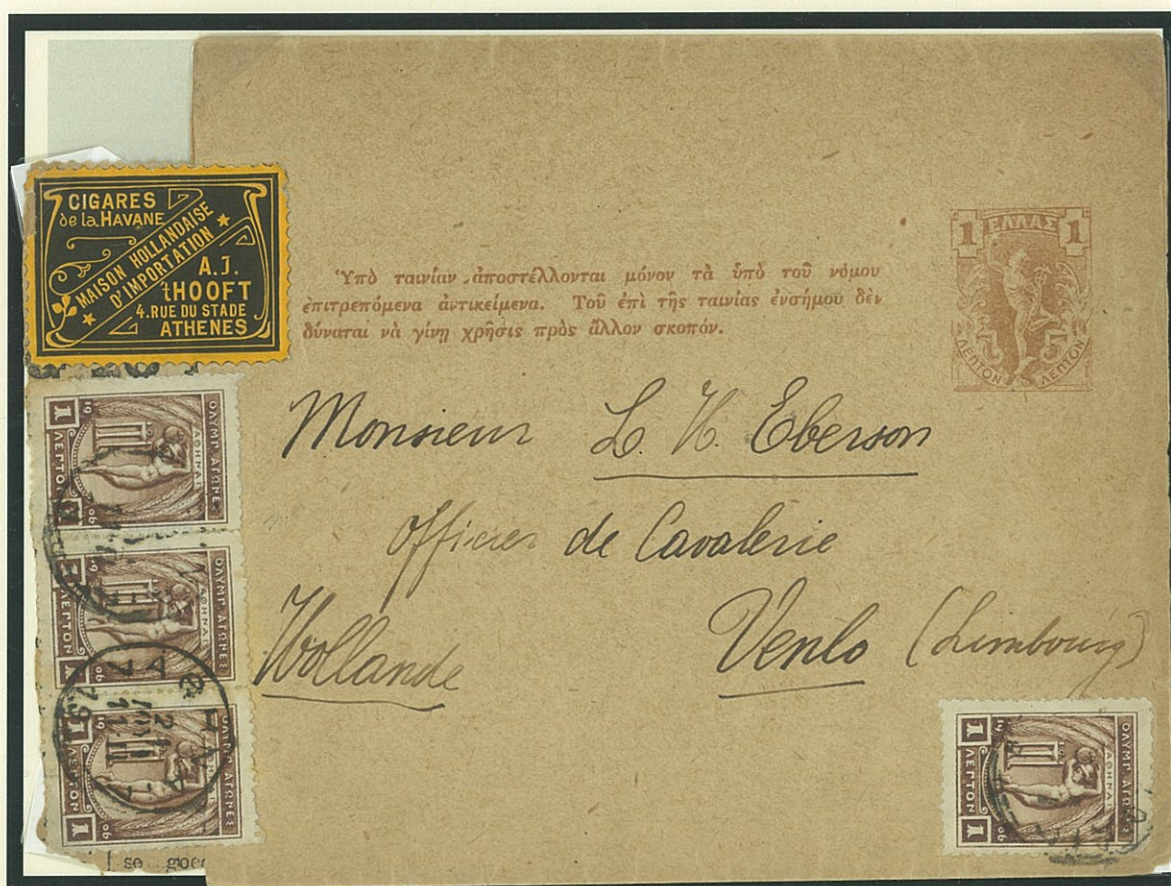 CIGARES
de la HAVANE
MAISON HOLLANDAISE
D'IMPORTATION
A.J.
'tHOOFT
4. RUE DU STADE
ATHENES
1 ΕΛΛΑΣ 1
ΛΕΠΤΟΝ ΛΕΠΤΟΝ
Ὑπὸ ταινίαν ἀποστέλλονται μόνον τὰ ὑπὸ τοῦ νόμου
ἐπιτρεπόμενα ἀντικείμενα. Τοῦ ἐπὶ τῆς ταινίας ἐνσήμου δὲν
δύναται νὰ γίνῃ χρῆσις πρὸς ἄλλον σκοπόν.
Monsieur L. H. Eberson
Officier de Cavalerie
Hollande Venlo (Limbourg)
ΟΛΥΜΠ. ΑΓΩΝΕΣ
ΑΘΗΝΑΙ
19 06
1 ΛΕΠΤΟΝ 1
ΟΛΥΜΠ. ΑΓΩΝΕΣ
ΑΘΗΝΑΙ
19 06
1 ΛΕΠΤΟΝ 1
ΟΛΥΜΠ. ΑΓΩΝΕΣ
19 06
1 ΛΕΠΤΟΝ 1
ΟΛΥΜΠ. ΑΓΩΝΕΣ
ΑΘΗΝΑΙ
19 06
1 ΛΕΠΤΟΝ 1
so